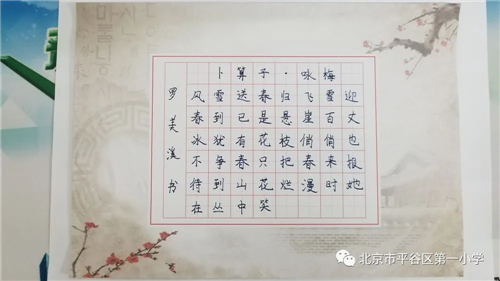 卜算子·咏梅
风雪送春归飞雪迎
春到已是悬崖百丈
冰犹有花枝俏俏也
不争春只把春来报
待到山花烂漫时她
在丛中笑
罗美溪书
北京市平谷区第一小学